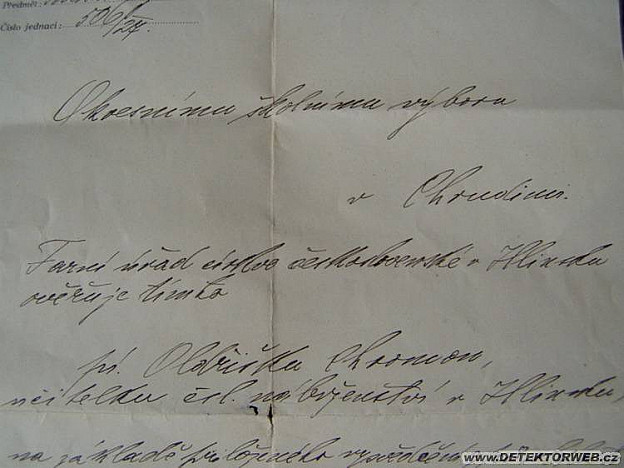 Předmět:
Číslo jednací: 506/24.
Okresnímu školnímu výboru
v Chrudimi.
Farní úřad církve československé v Hlinsku
ověřuje tímto
pí. Oldřišku
učitelku čsl. náboženství v Hlinsku,
na základě
WWW.DETEKTORWEB.CZ